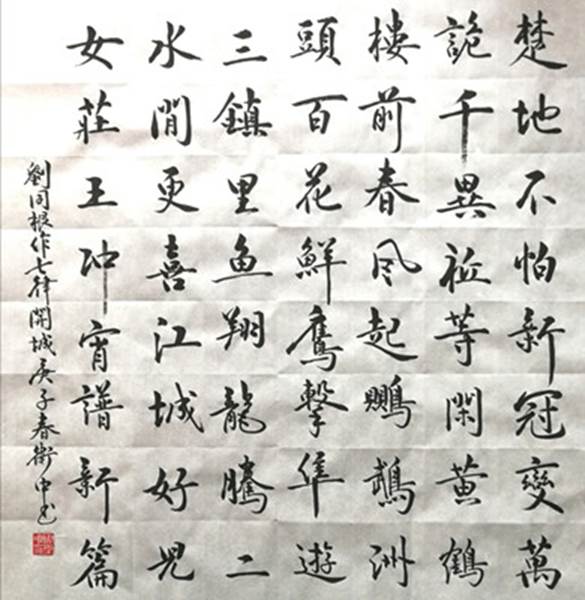 楚地不怕新冠變萬
詭千異祇等閑黃鶴
樓前春风起鸚鵡洲
頭百花鮮鷹擊隼遊
三鎮里鱼翔龍騰二
水間更喜江城好兒
女莊王冲霄譜新篇
劉同根作七律開城庚子春衛中书